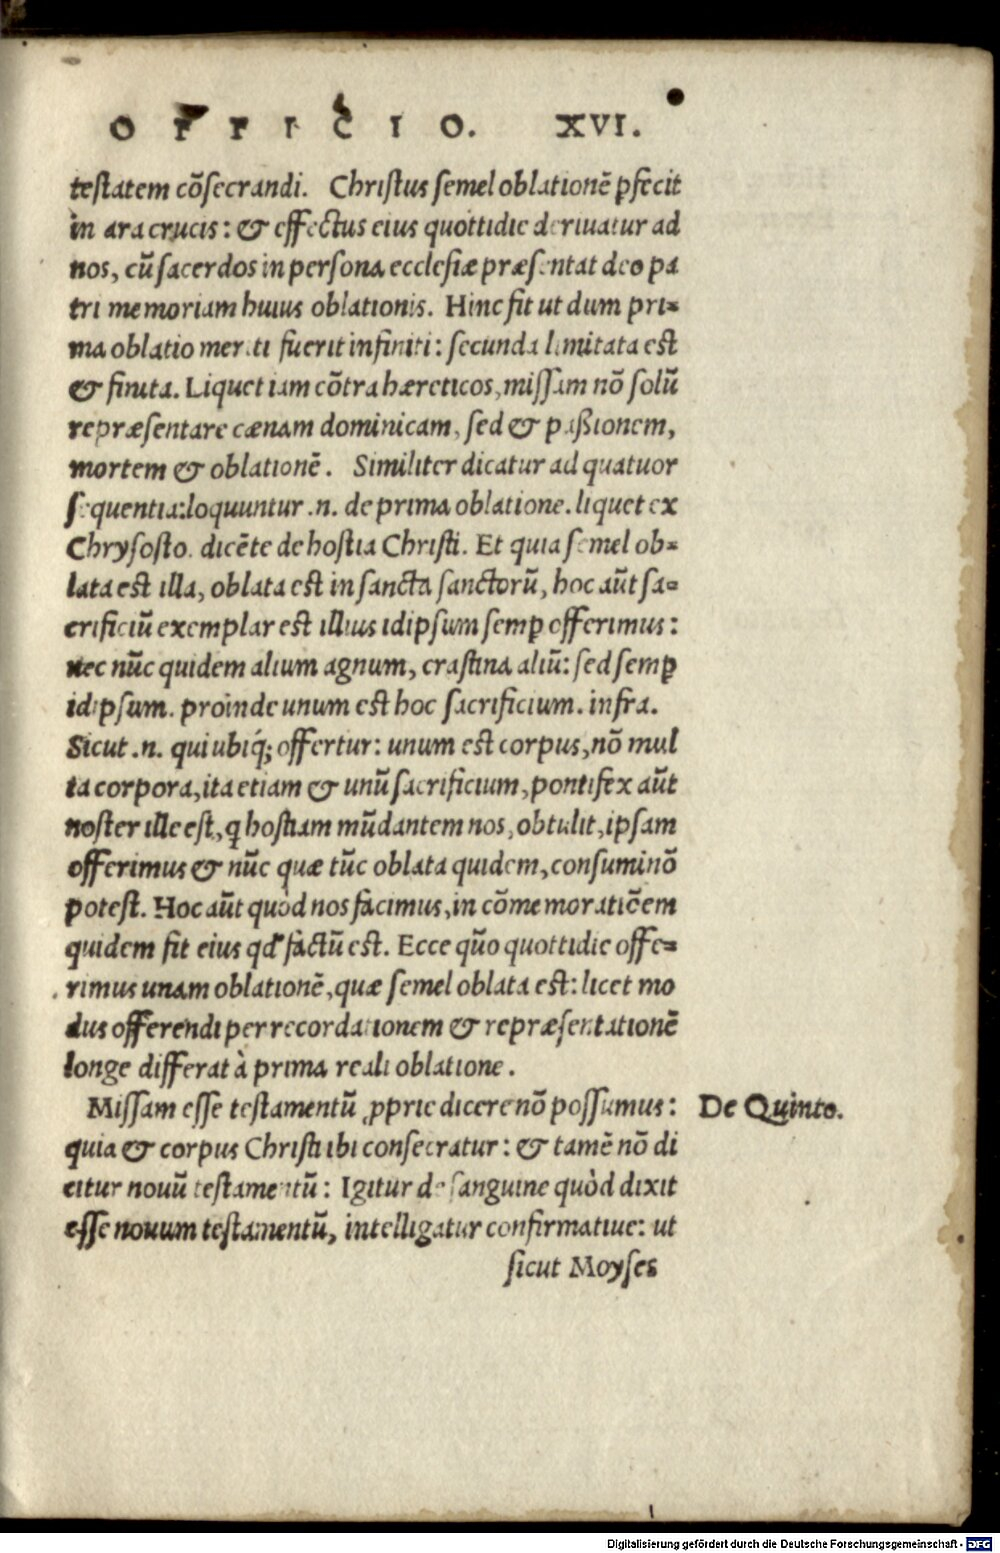 OFFICIO. XVI.
testatem cōsecrandi. Christus semel oblationē ꝑfecit
in ara crucis: & effectus eius quottidie deriuatur ad
nos, cū sacerdos in persona ecclesiæ præsentat deo pa
tri memoriam huius oblationis. Hinc fit ut dum pri=
ma oblatio meriti fuerit infiniti: secunda limitata est
& finita. Liquet iam cōtra hæreticos, missam nō solū
repræsentare cænam dominicam, sed & paßionem,
mortem & oblationē. Similiter dicatur ad quatuor
sequentia: loquuntur .n. de prima oblatione. liquet ex
Chrysosto. dicēte de hostia Christi. Et quia semel ob=
lata est illa, oblata est in sancta sanctorū, hoc aūt sa=
crificiū exemplar est illius idipsum semꝑ offerimus:
nec nūc quidem alium agnum, crastina aliū: sed semꝑ
idipsum. proinde unum est hoc sacrificium. infra.
Sicut .n. qui ubiq́; offertur: unum est corpus, nō mul
ta corpora, ita etiam & unū sacrificium, pontifex aūt
noster ille est, q hostiam mūdantem nos, obtulit, ipsam
offerimus & nūc quæ tūc oblata quidem, consumi nō
potest. Hoc aūt quòd nos facimus, in cōmemorationem
quidem fit eius qđ factū est. Ecce quō quottidie offe=
rimus unam oblationē, quæ semel oblata est: licet mo
dus offerendi per recordationem & repræsentationē
longe differat à prima reali oblatione.
Missam esse testamentū ꝓprie dicere nō possumus:
De Quinto.
quia & corpus Christi ibi consecratur: & tamē nō di
citur nouū testamentū: Igitur de sanguine quòd dixit
esse nouum testamentū, intelligatur confirmatiue: ut
sicut Moyses
Digitalisierung gefördert durch die Deutsche Forschungsgemeinschaft - DFG